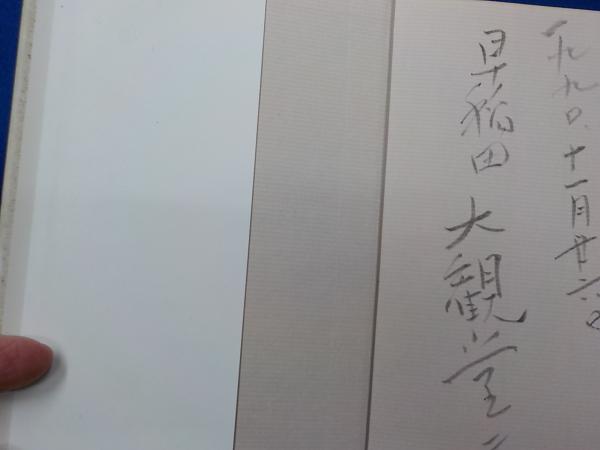 一九九〇.十一月廿六日
早稲田大観堂